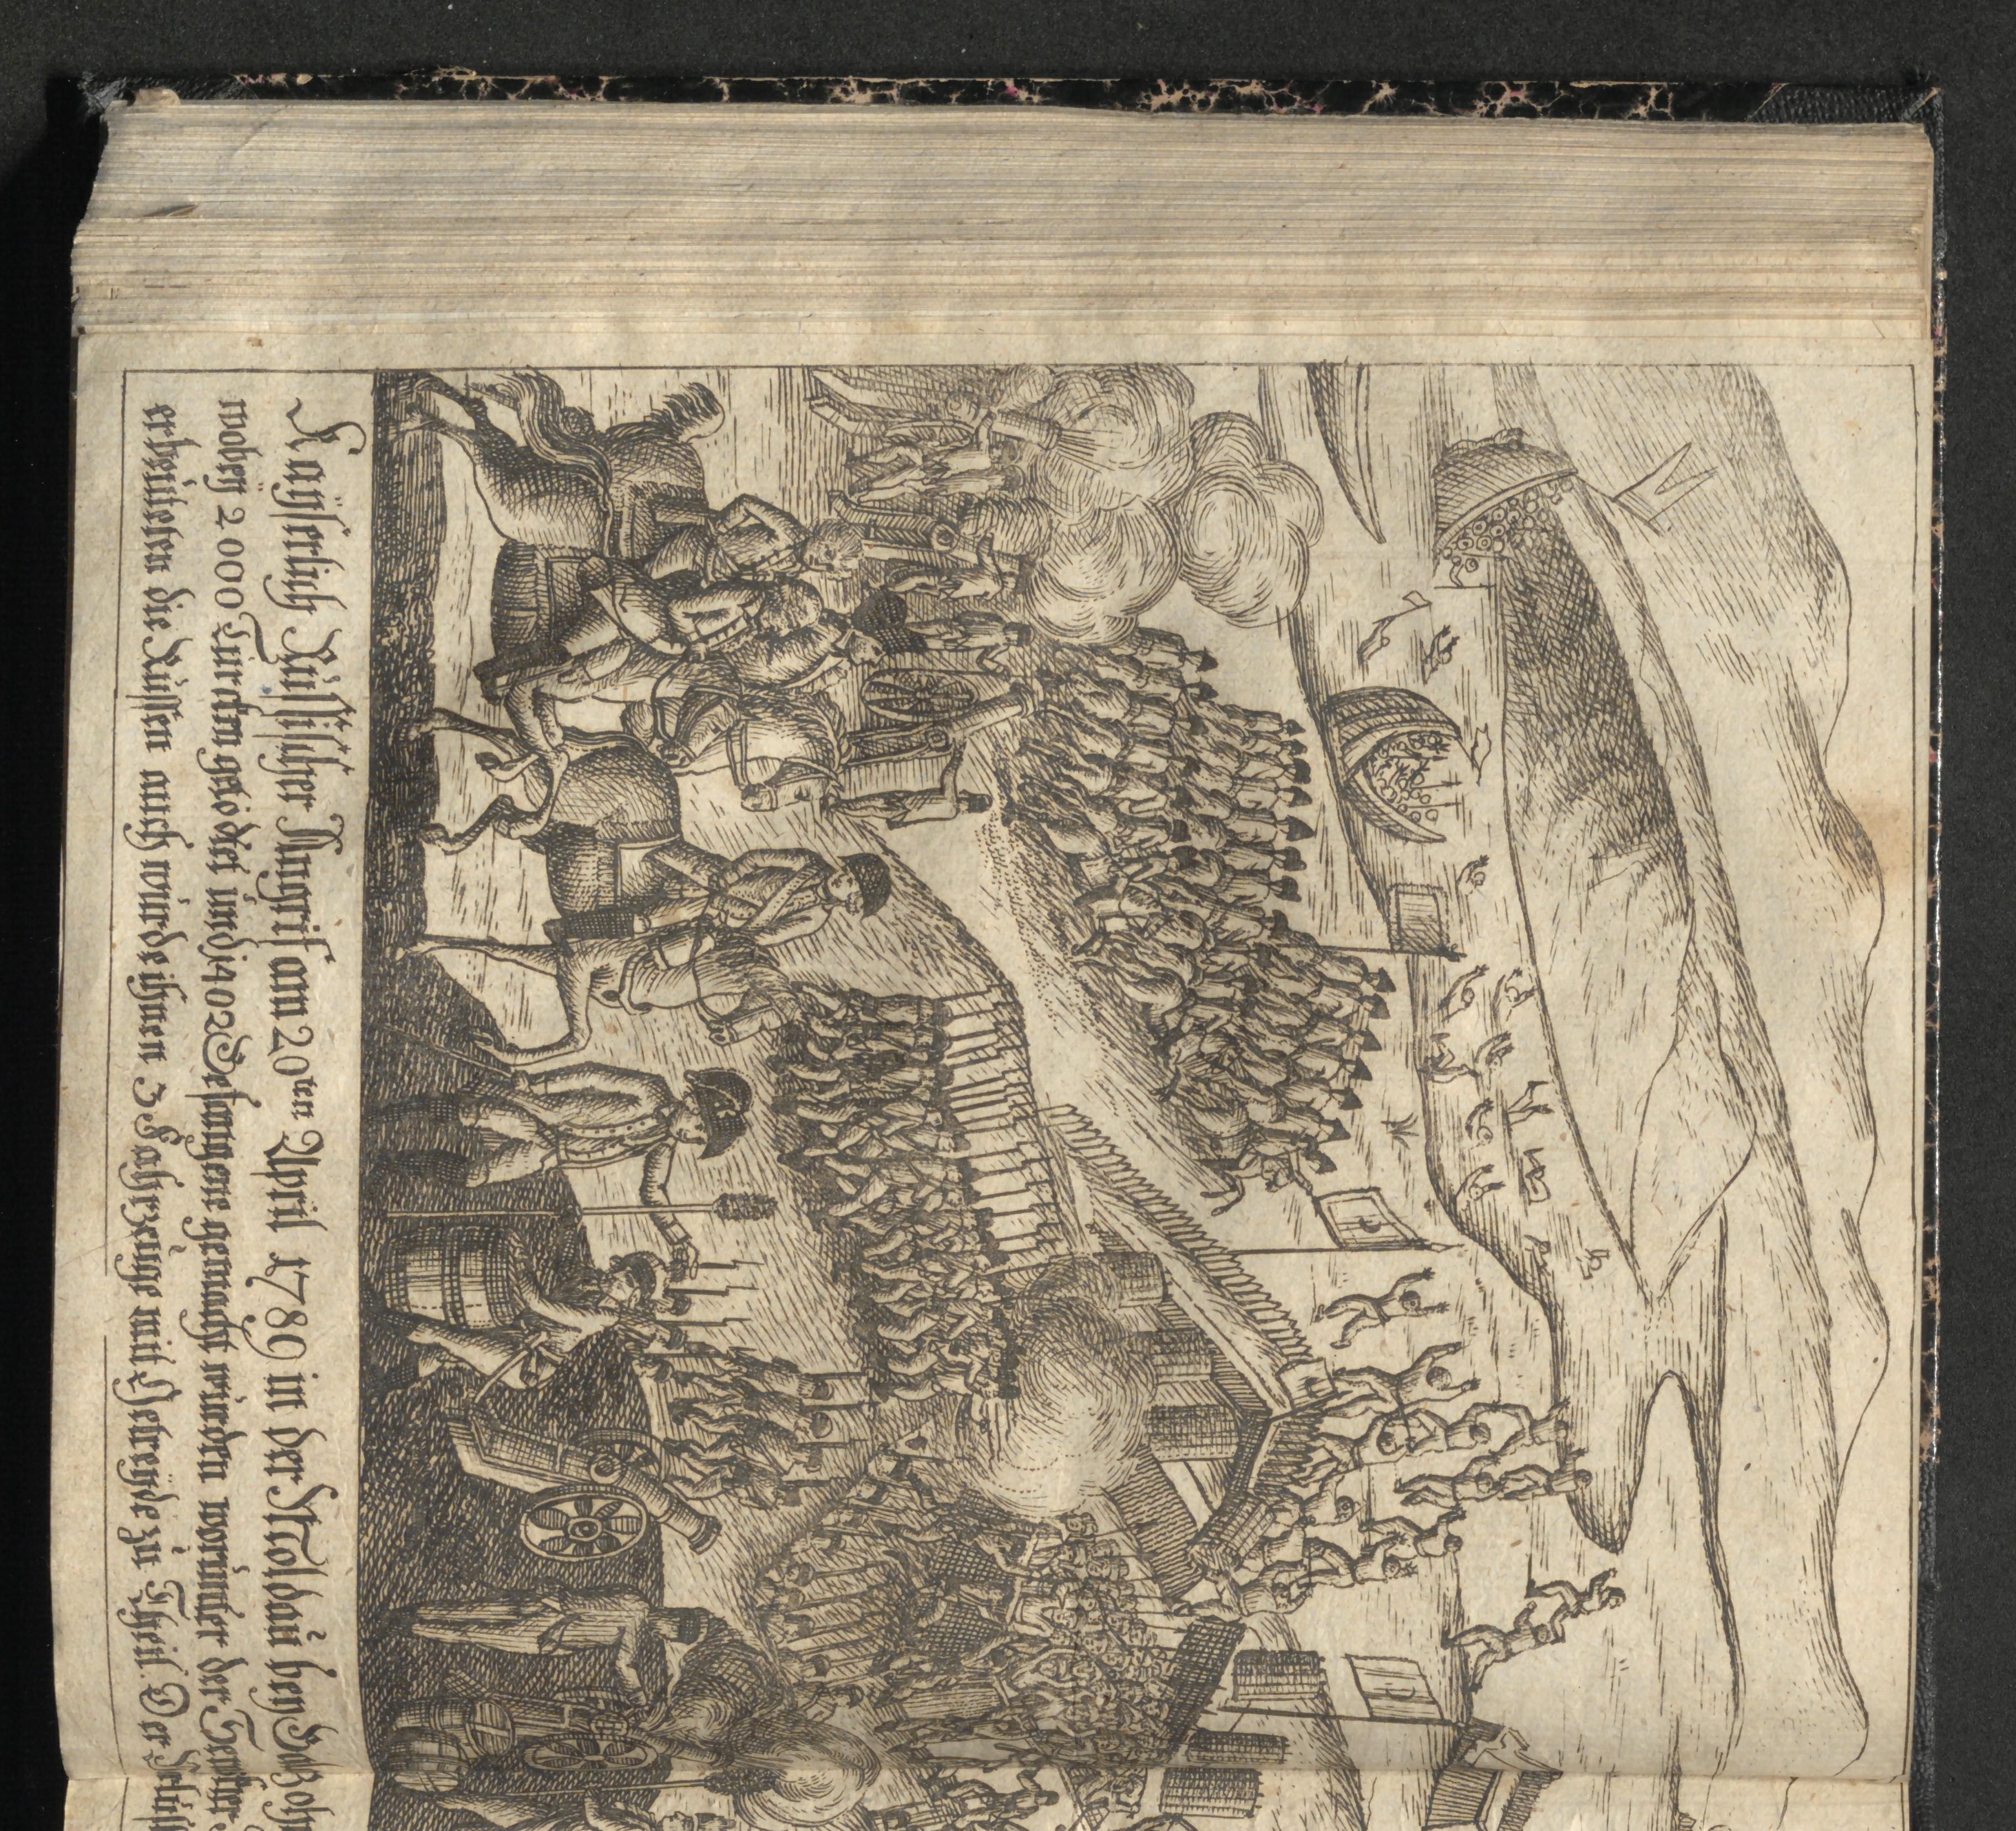 Kaÿserlich Rüssischer Angrif am 20ten April 1789 in der Moldaü beÿ
wobeÿ 2000 Türcken getödtet ünd 1402 Gefangene gemacht würden woründer der
erbeüteten die Rüssen aüch würde ihnen 3 Fahrzeüge mit zü Theil. Der